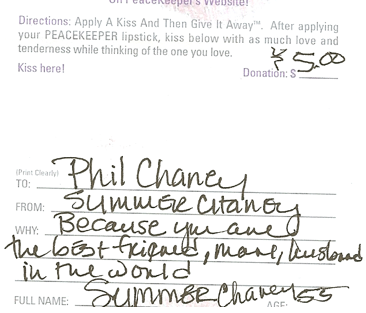 On Peacekeeper's Website!
Directions: Apply A Kiss And Then Give It Away™. After applying
your PEACEKEEPER lipstick, kiss below with as much love and
tenderness while thinking of the one you love.
Kiss here!
Donation: $ 5.00
(Print Clearly)
TO: Phil Chaney
FROM: SUMMER Chaney
WHY: Because you are
the best friend, man, husband
in the world
FULL NAME: SUMMER Chaney AGE: 55